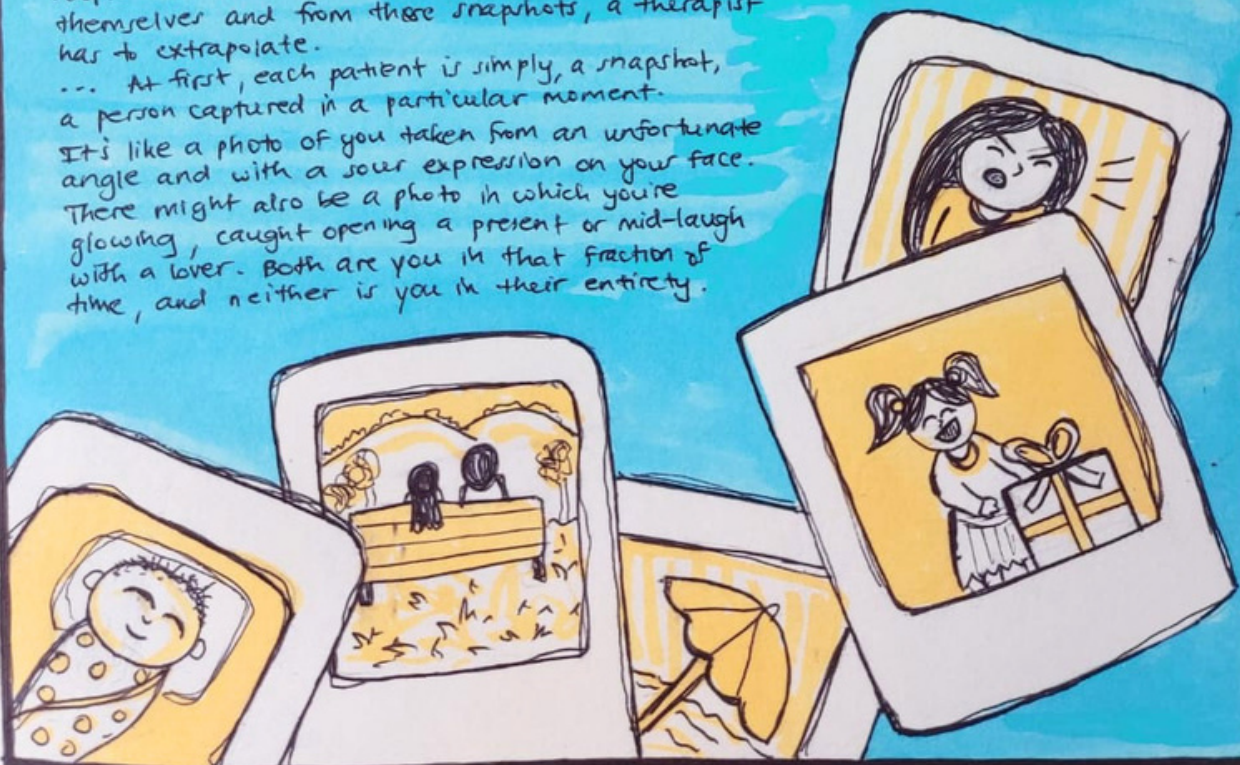 themselves and from these snapshots, a therapist
has to extrapolate.
... At first, each patient is simply, a snapshot,
a person captured in a particular moment.
It's like a photo of you taken from an unfortunate
angle and with a sour expression on your face.
There might also be a photo in which you're
glowing, caught opening a present or mid-laugh
with a lover. Both are you in that fraction of
time, and neither is you in their entirety.